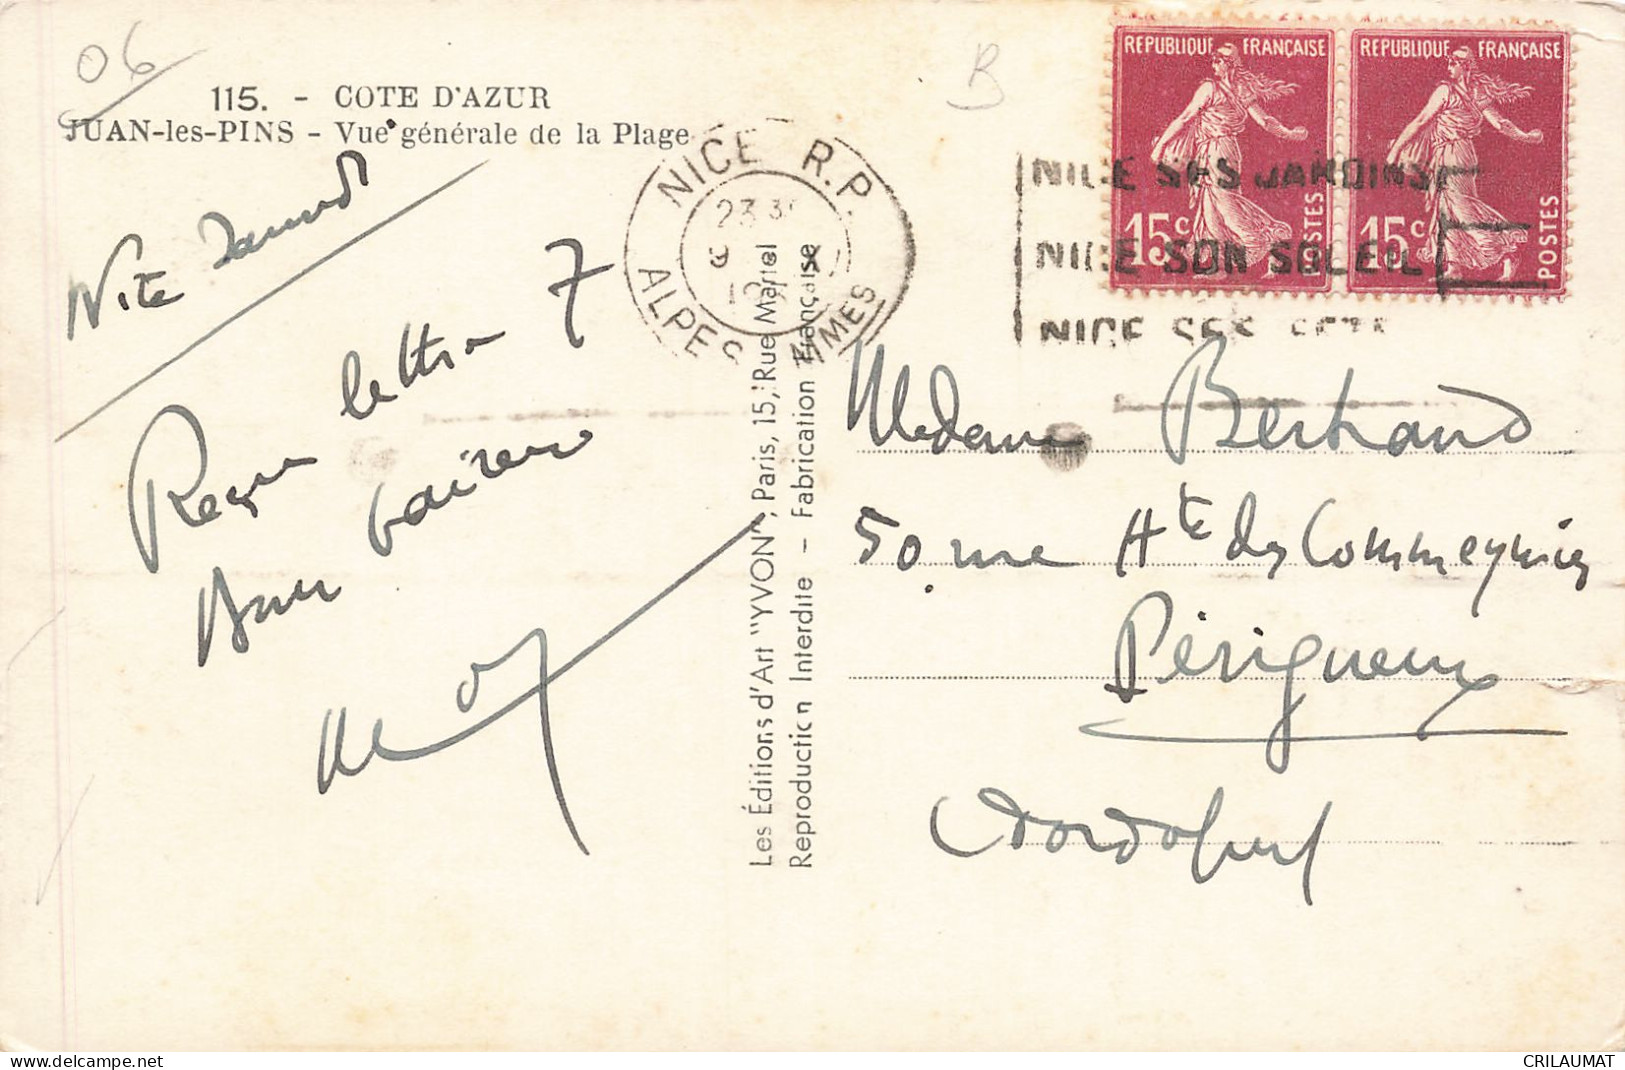 06
B
115. - COTE D'AZUR
JUAN-les-PINS - Vue générale de la Plage
RÉPUBLIQUE FRANÇAISE
15c
POSTES
RÉPUBLIQUE FRANÇAISE
15c
POSTES
NICE R.P.
23 30
ALPES MMES
NICE SES JARDINS
NICE SON SOLEIL
NICE SES
Nice
Reçu lettre 7
Bons baisers
Les Éditions d'Art "YVON", Paris, 15, Rue Martel
Reproduction Interdite - Fabrication Française
Madame Bertrand
50 rue Hte des Commeymies
Périgueux
Dordogne
delcampe.net
CRILAUMAT